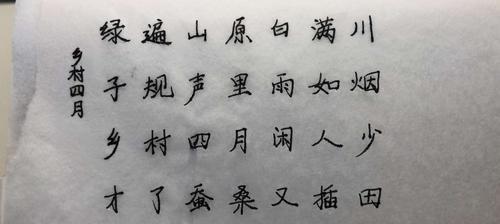 乡村四月
绿遍山原白满川
子规声里雨如烟
乡村四月闲人少
才了蚕桑又插田